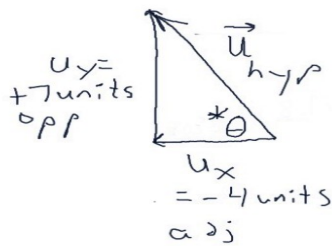 u⃗
hyp
uy=
+7units
opp
*θ
ux
= -4 units
adj